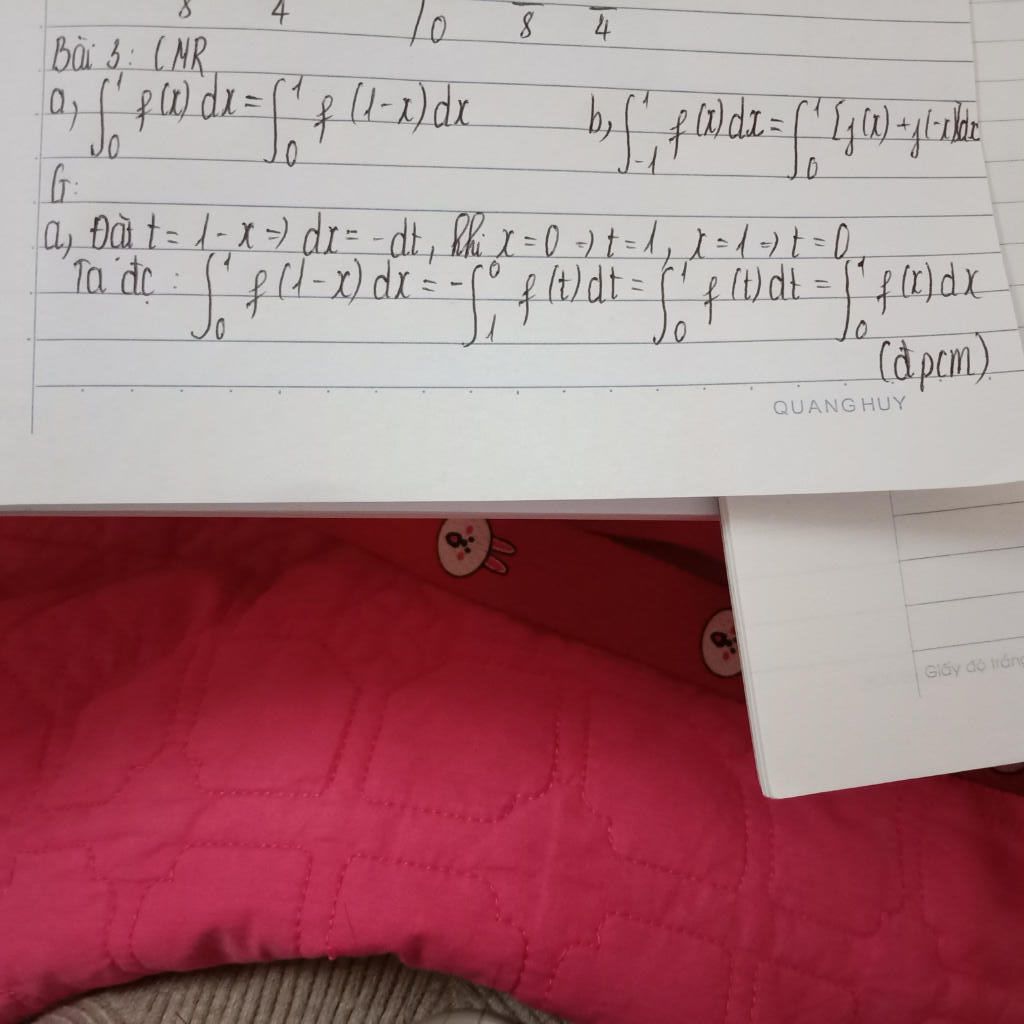 8 4 /0 8 4
Bài 3: CMR
a, ∫₀¹ f(x) dx = ∫₀¹ f(1-x) dx b, ∫₋₁¹ f(x) dx = ∫₀¹ [f(x) + f(-x)] dx
G:
a, Đặt t = 1 - x => dx = -dt, khi x = 0 => t = 1, x = 1 => t = 0
Ta đc : ∫₀¹ f(1-x) dx = -∫₁⁰ f(t) dt = ∫₀¹ f(t) dt = ∫₀¹ f(x) dx
(đpcm)
QUANG HUY
Giấy độ trắng